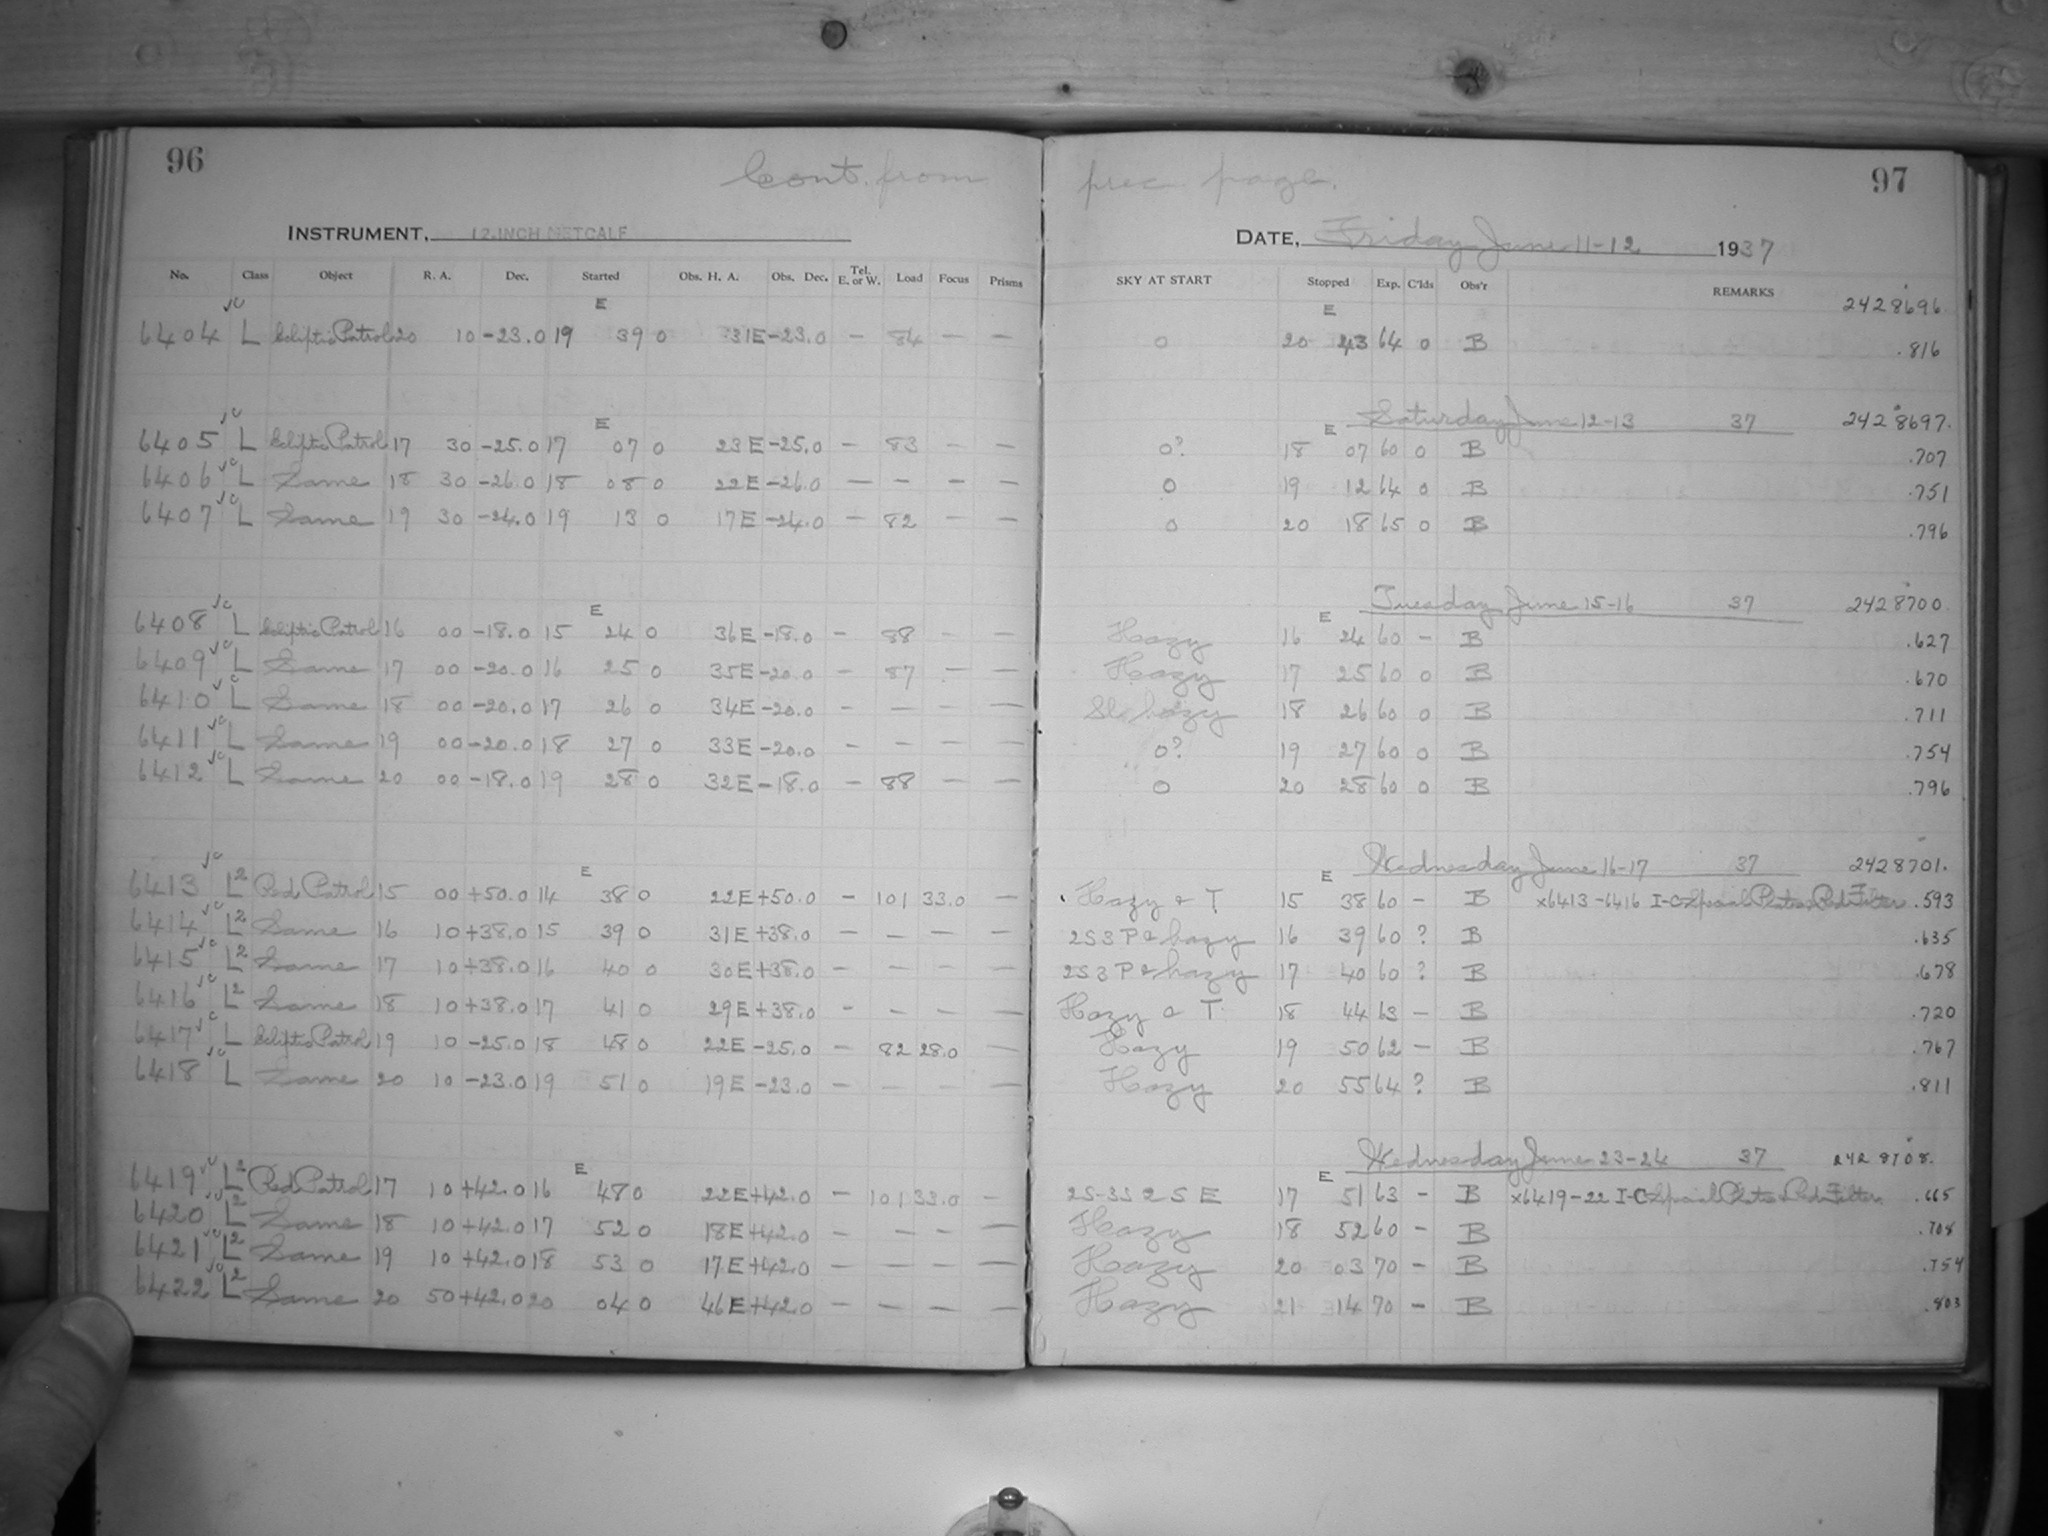 96 Cont. from prec. page. 97
INSTRUMENT, 12-INCH METCALF DATE, Friday June 11-12 1937
No. Class Object R. A. Dec. Started Obs. H. A. Obs. Dec. Tel. E. or W. Load Focus Prisms SKY AT START Stopped Exp. C'lds Obs'r REMARKS
E E 2428696.
6404 L Ecliptic Patrol 20 10 -23.0 19 39 0 31E -23.0 — 84 — — 0 20 43 64 0 B .816
E E Saturday June 12-13 37 2428697.
6405 L Ecliptic Patrol 17 30 -25.0 17 07 0 23E -25.0 — 83 — — 0? 18 07 60 0 B .707
6406 L Same 18 30 -26.0 18 08 0 22E -26.0 — — — — 0 19 12 64 0 B .751
6407 L Same 19 30 -24.0 19 13 0 17E -24.0 — 82 — — 0 20 18 65 0 B .796
E E Tuesday June 15-16 37 2428700.
6408 L Ecliptic Patrol 16 00 -18.0 15 24 0 36E -18.0 — 88 — — Hazy 16 24 60 — B .627
6409 L Same 17 00 -20.0 16 25 0 35E -20.0 — 87 — — Hazy 17 25 60 0 B .670
6410 L Same 18 00 -20.0 17 26 0 34E -20.0 — — — — Sl. hazy 18 26 60 0 B .711
6411 L Same 19 00 -20.0 18 27 0 33E -20.0 — — — — 0? 19 27 60 0 B .754
6412 L Same 20 00 -18.0 19 28 0 32E -18.0 — 88 — — 0 20 28 60 0 B .796
E E Wednesday June 16-17 37 2428701.
6413 L2 Red Patrol 15 00 +50.0 14 38 0 22E +50.0 — 101 33.0 — Hazy & T 15 38 60 — B x6413-6416 I-C Special Plates Red Filter .593
6414 L2 Same 16 10 +38.0 15 39 0 31E +38.0 — — — — 2S3P & hazy 16 39 60 ? B .635
6415 L2 Same 17 10 +38.0 16 40 0 30E +38.0 — — — — 2S3P & hazy 17 40 60 ? B .678
6416 L2 Same 18 10 +38.0 17 41 0 29E +38.0 — — — — Hazy & T 18 44 63 — B .720
6417 L Ecliptic Patrol 19 10 -25.0 18 48 0 22E -25.0 — 82 28.0 — Hazy 19 50 62 — B .767
6418 L Same 20 10 -23.0 19 51 0 19E -23.0 — — — — Hazy 20 55 64 ? B .811
E E Wednesday June 23-24 37 2428708.
6419 L2 Red Patrol 17 10 +42.0 16 48 0 22E +42.0 — 101 33.0 — 2S-3S 2 S E 17 51 63 — B x6419-22 I-C Special Plates Red Filter .665
6420 L2 Same 18 10 +42.0 17 52 0 18E +42.0 — — — — Hazy 18 52 60 — B .708
6421 L2 Same 19 10 +42.0 18 53 0 17E +42.0 — — — — Hazy 20 03 70 — B .754
6422 L2 Same 20 50 +42.0 20 04 0 46E +42.0 — — — — Hazy 21 14 70 — B .803